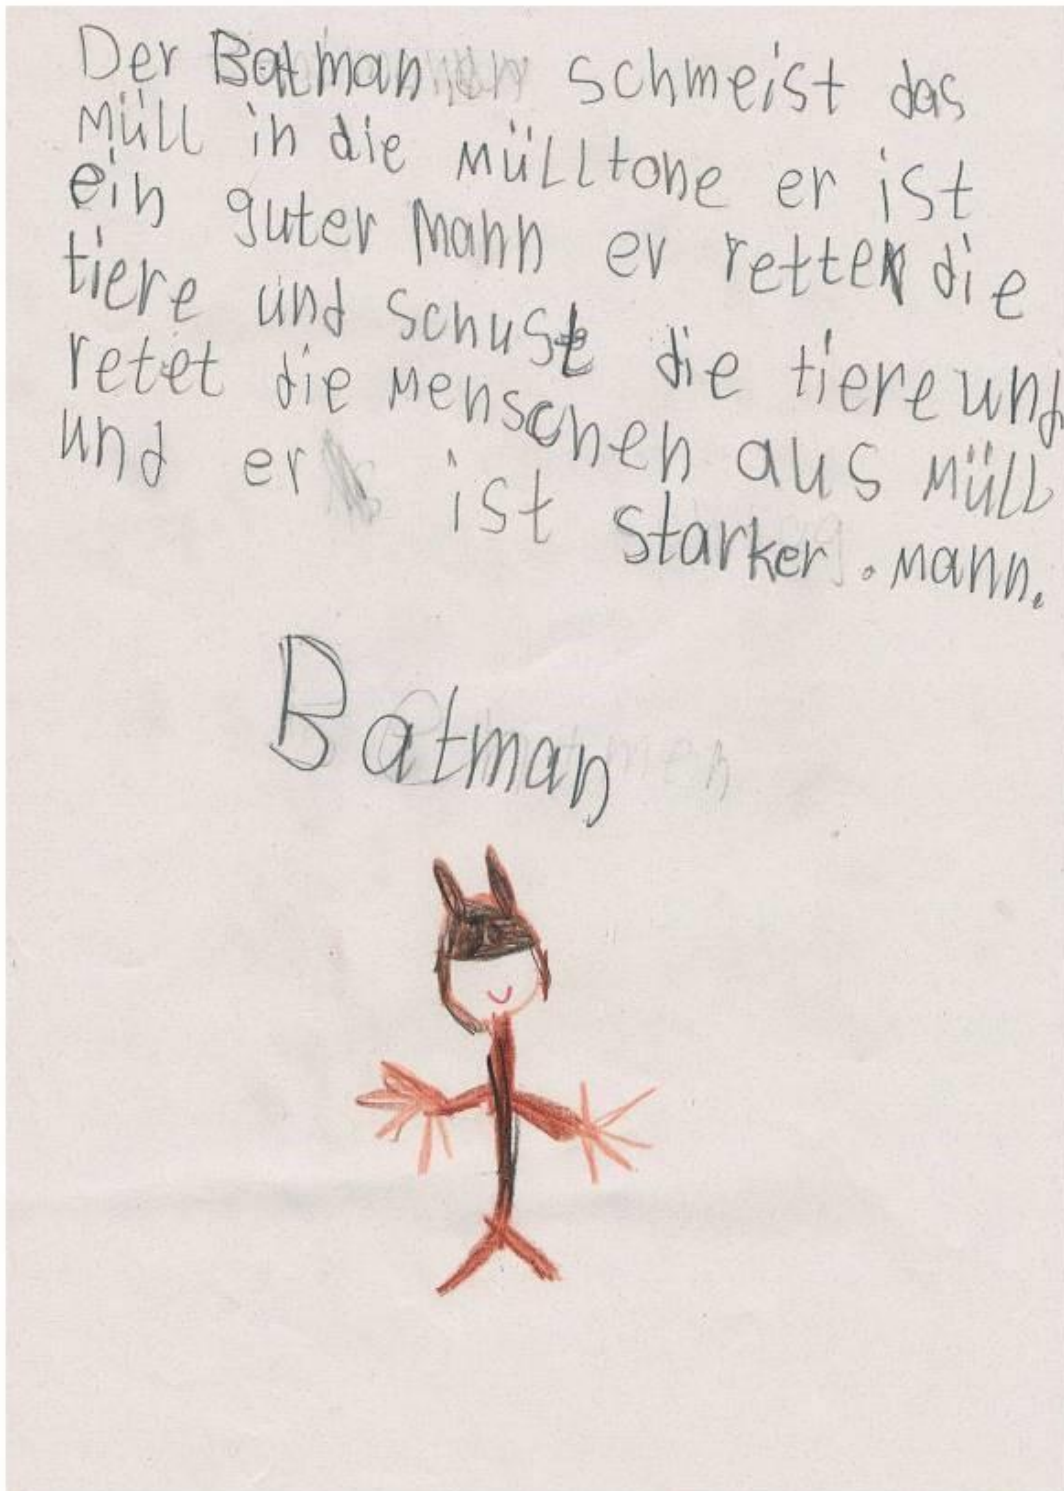 Der Batman schmeist das
müll in die mülltone er ist
ein guter Mann er rettet die
tiere und schust die tiere und
retet die menschen aus müll
und er ist starker . mann.
Batman